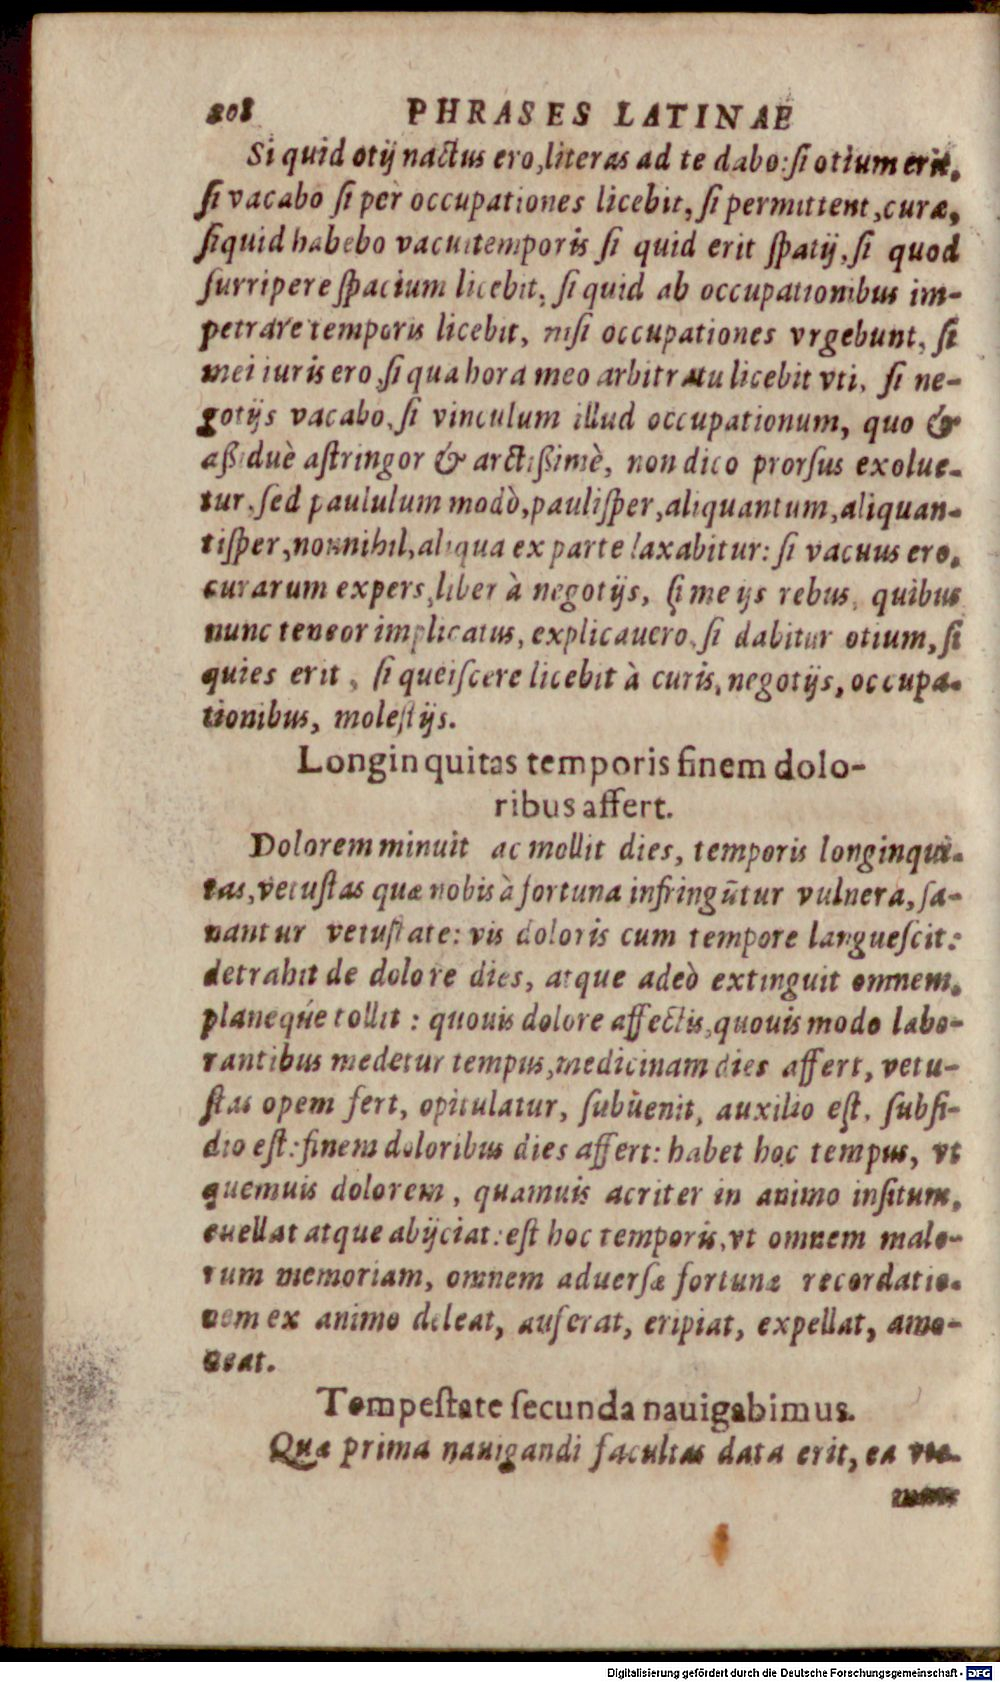 208 PHRASES LATINAE
Si quid otij nactus ero, literas ad te dabo: si otium erit,
si vacabo si per occupationes licebit, si permittent, curæ,
siquid habebo vacui temporis si quid erit spatij, si quod
surripere spacium licebit, si quid ab occupationibus im-
petrare temporis licebit, nisi occupationes vrgebunt, si
mei iuris ero, si qua hora meo arbitratu licebit vti, si ne-
gotijs vacabo, si vinculum illud occupationum, quo &
aßiduè astringor & arctißimè, non dico prorsus exolue-
tur, sed paululum modò, paulisper, aliquantum, aliquan-
tisper, nonnihil, aliqua ex parte laxabitur: si vacuus ero,
curarum expers, liber à negotijs, si me ijs rebus, quibus
nunc teneor implicatus, explicauero, si dabitur otium, si
quies erit, si queiscere licebit à curis, negotijs, occupa-
tionibus, molestijs.
Longinquitas temporis finem dolo-
ribus affert.
Dolorem minuit ac mollit dies, temporis longinqui-
tas, vetustas quæ nobis à fortuna infringũtur vulnera, sa-
nantur vetustate: vis doloris cum tempore languescit:
detrahit de dolore dies, atque adeò extinguit omnem,
planeque tollit: quouis dolore affectis, quouis modo labo-
rantibus medetur tempus, medicinam dies affert, vetu-
stas opem fert, opitulatur, subuenit, auxilio est, subsi-
dio est: finem doloribus dies affert: habet hoc tempus, vt
quemuis dolorem, quamuis acriter in animo insitum,
euellat atque abijciat: est hoc temporis, vt omnem malo-
rum memoriam, omnem aduersæ fortunæ recordatio-
nem ex animo deleat, auferat, eripiat, expellat, amo-
ueat.
Tempestate secunda nauigabimus.
Quæ prima nauigandi facultas data erit, ea